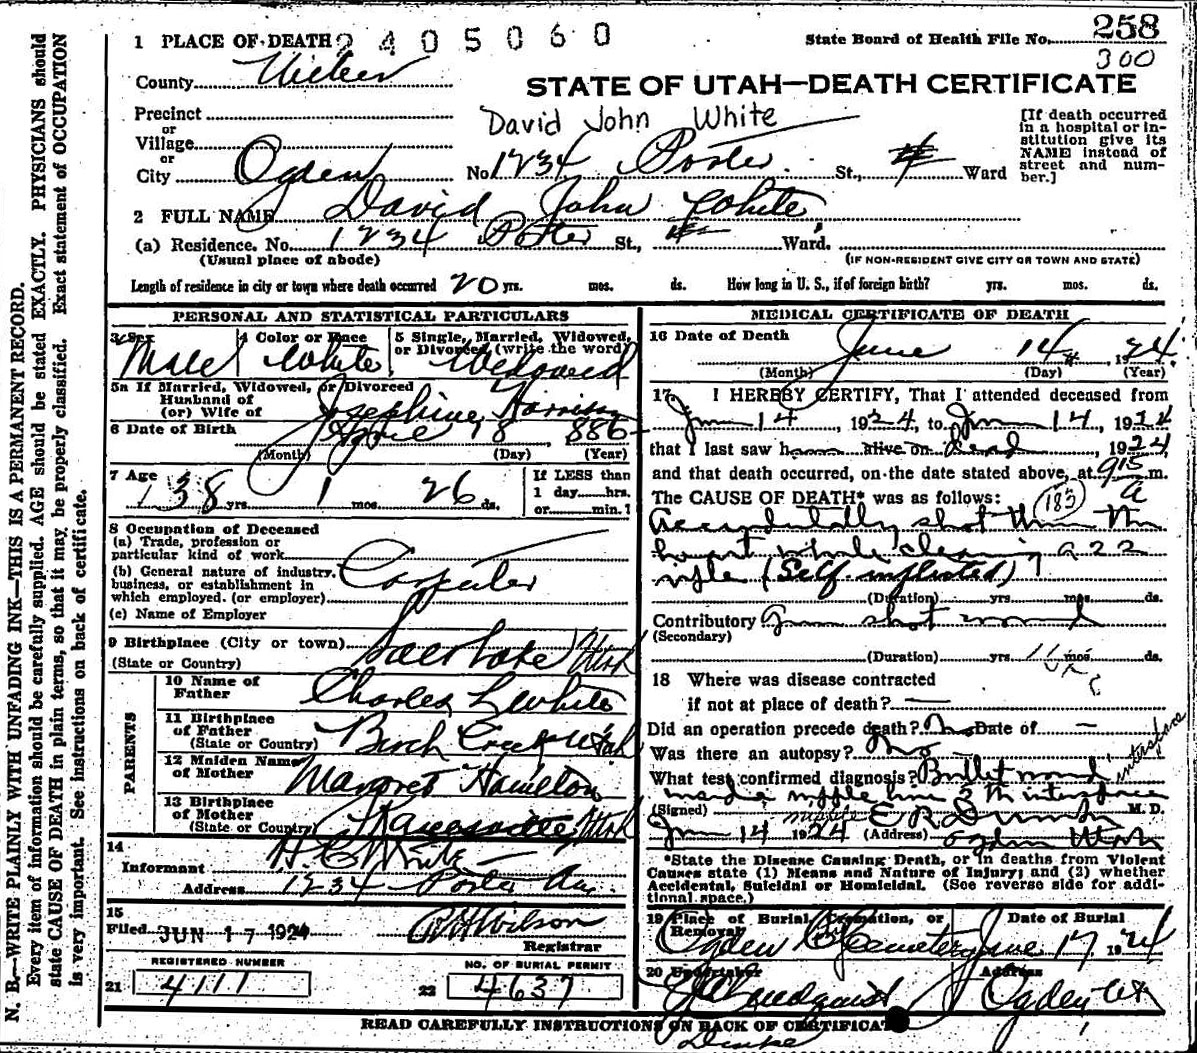 N. B.—WRITE PLAINLY WITH UNFADING INK—THIS IS A PERMANENT RECORD.
Every item of information should be carefully supplied. AGE should be stated EXACTLY. PHYSICIANS should
state CAUSE OF DEATH in plain terms, so that it may be properly classified. Exact statement of OCCUPATION
is very important. See instructions on back of certificate.
1 PLACE OF DEATH 2405060
State Board of Health File No. 258
300
County
STATE OF UTAH—DEATH CERTIFICATE
Precinct
or
Village
or
City Ogden No 1234 Porter St., Ward
David John White
[If death occurred
in a hospital or in-
stitution give its
NAME instead of
street and num-
ber.]
2 FULL NAME David John White
(a) Residence. No. 1234 Porter St., Ward.
(Usual place of abode)
(IF NON-RESIDENT GIVE CITY OR TOWN AND STATE)
Length of residence in city or town where death occurred 20 yrs. mos. ds. How long in U. S., if of foreign birth? yrs. mos. ds.
PERSONAL AND STATISTICAL PARTICULARS
3 Sex 4 Color or Race 5 Single, Married, Widowed,
or Divorced (write the word)
Male White Widowed
5a If Married, Widowed, or Divorced
Husband of
(or) Wife of Josephine Harrison
6 Date of Birth April 18 886
(Month) (Day) (Year)
7 Age 38 yrs 1 mos 26 ds.
If LESS than
1 day hrs.
or min.?
8 Occupation of Deceased
(a) Trade, profession or
particular kind of work
(b) General nature of industry.
business, or establishment in
which employed. (or employer) Carpenter
(c) Name of Employer
9 Birthplace (City or town) Salt Lake Utah
(State or Country)
PARENTS
10 Name of
Father Charles L White
11 Birthplace
of Father Birch Creek Utah
(State or Country)
12 Maiden Name
of Mother Margret Hamilton
13 Birthplace
of Mother Utah
(State or Country)
14
Informant H. C. White
Address 1234 Porter Ave
15
Filed JUN 17 1924 Wilson
Registrar
REGISTERED NUMBER NO. OF BURIAL PERMIT
21 4111 22 4637
MEDICAL CERTIFICATE OF DEATH
16 Date of Death June 14 1924
(Month) (Day) (Year)
17 I HEREBY CERTIFY, That I attended deceased from
Jun 14, 1924, to Jun 14, 1924
that I last saw h alive on dead, 1924
and that death occurred, on the date stated above, at 9 15 m.
a
The CAUSE OF DEATH* was as follows: 183
Accidentally shot thru the
heart while cleaning a 22
rifle (Self-inflicted)
(Duration) yrs. mos. ds.
Contributory Gun shot wound
(Secondary)
(Duration) yrs. mos. ds.
18 Where was disease contracted
if not at place of death?
Did an operation precede death? No Date of —
Was there an autopsy? No
What test confirmed diagnosis? Bullet wound
nipple line 5th interspace
(Signed) E R M. D.
Jun 14 1924 (Address) Ogden Utah
*State the Disease Causing Death, or in deaths from Violent
Causes state (1) Means and Nature of Injury; and (2) whether
Accidental, Suicidal or Homicidal. (See reverse side for addi-
tional space.)
19 Place of Burial, Cremation, or
Removal Date of Burial
Ogden Cemetery June 17 1924
20 Undertaker Address
Lindquist Ogden Ut
READ CAREFULLY INSTRUCTIONS ON BACK OF CERTIFICATE